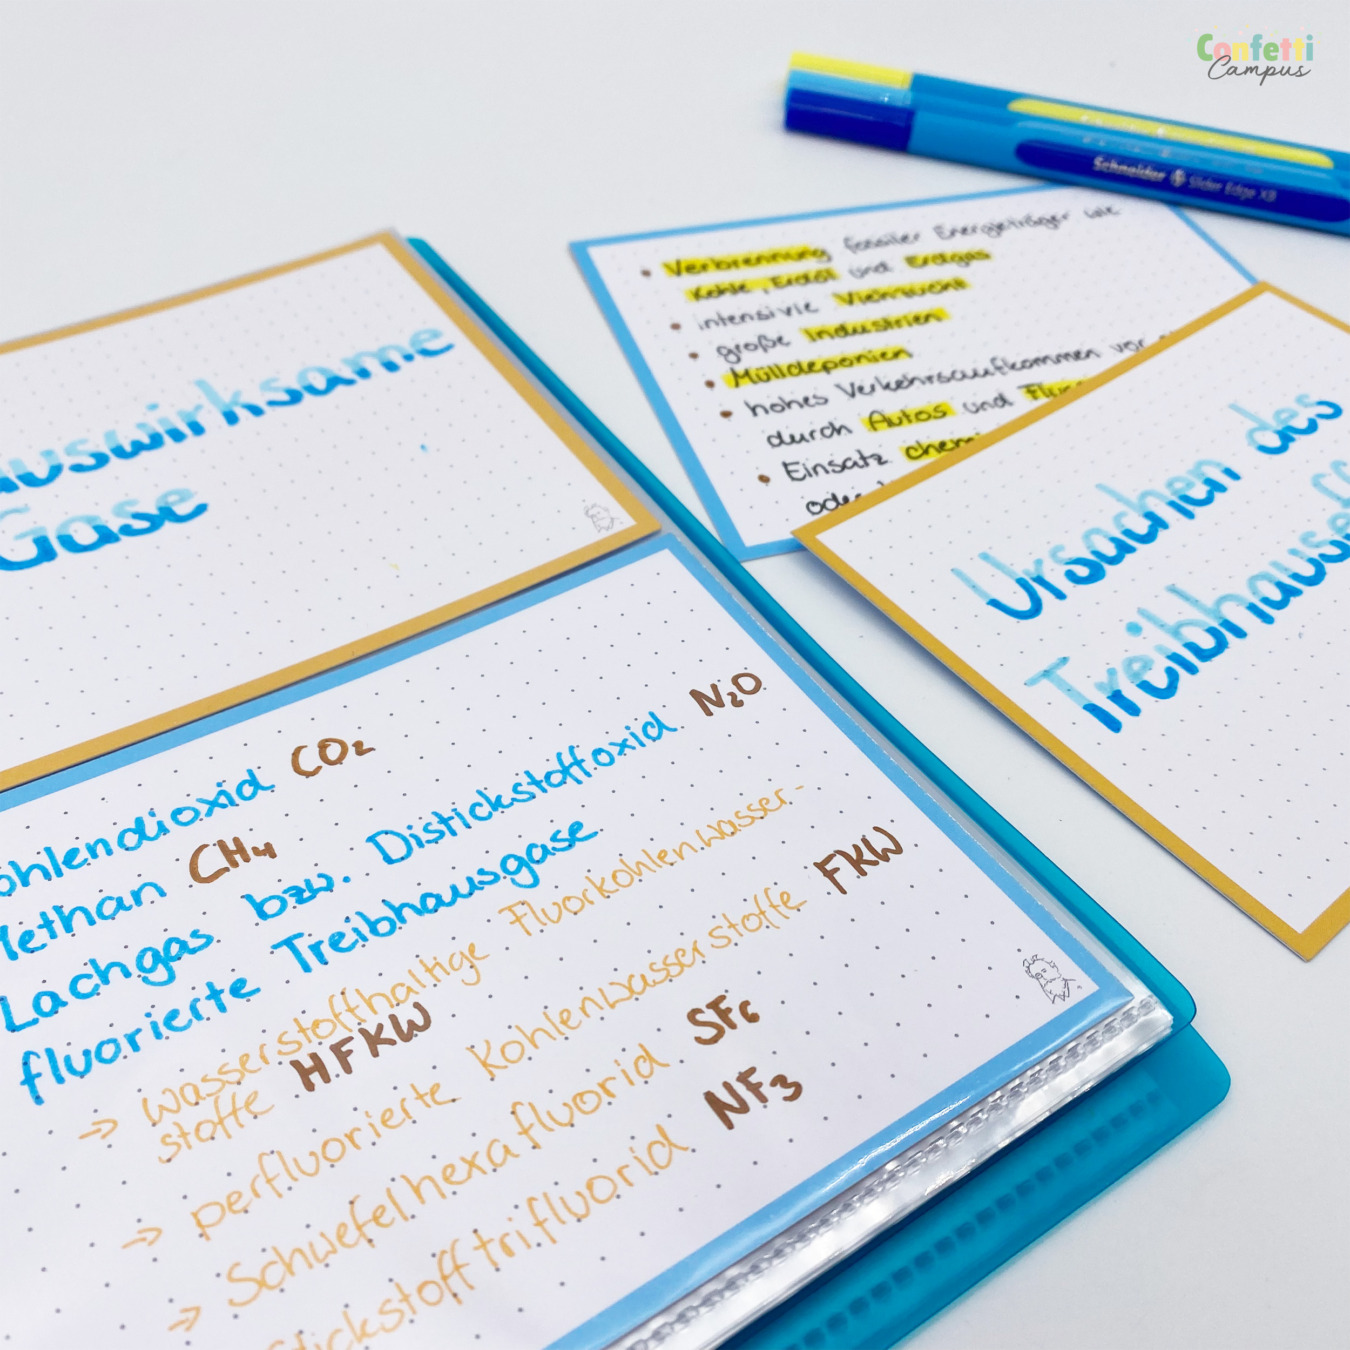 Confetti
Campus
Schneider Slider Edge XB
Verbrennung fossiler Energieträger wie
Kohle, Erdöl und Erdgas
intensive Viehzucht
große Industrien
Mülldeponien
hohes Verkehrsaufkommen vor
durch Autos und
Einsatz
Ursachen des
Gase
CO₂
Methan CH₄
Lachgas bzw. Distickstoffoxid N₂O
fluorierte Treibhausgase
→ wasserstoffhaltige Fluorkohlenwasser-
stoffe HFKW
→ perfluorierte Kohlenwasserstoffe FKW
→ Schwefelhexafluorid SF₆
Stickstofftrifluorid NF₃